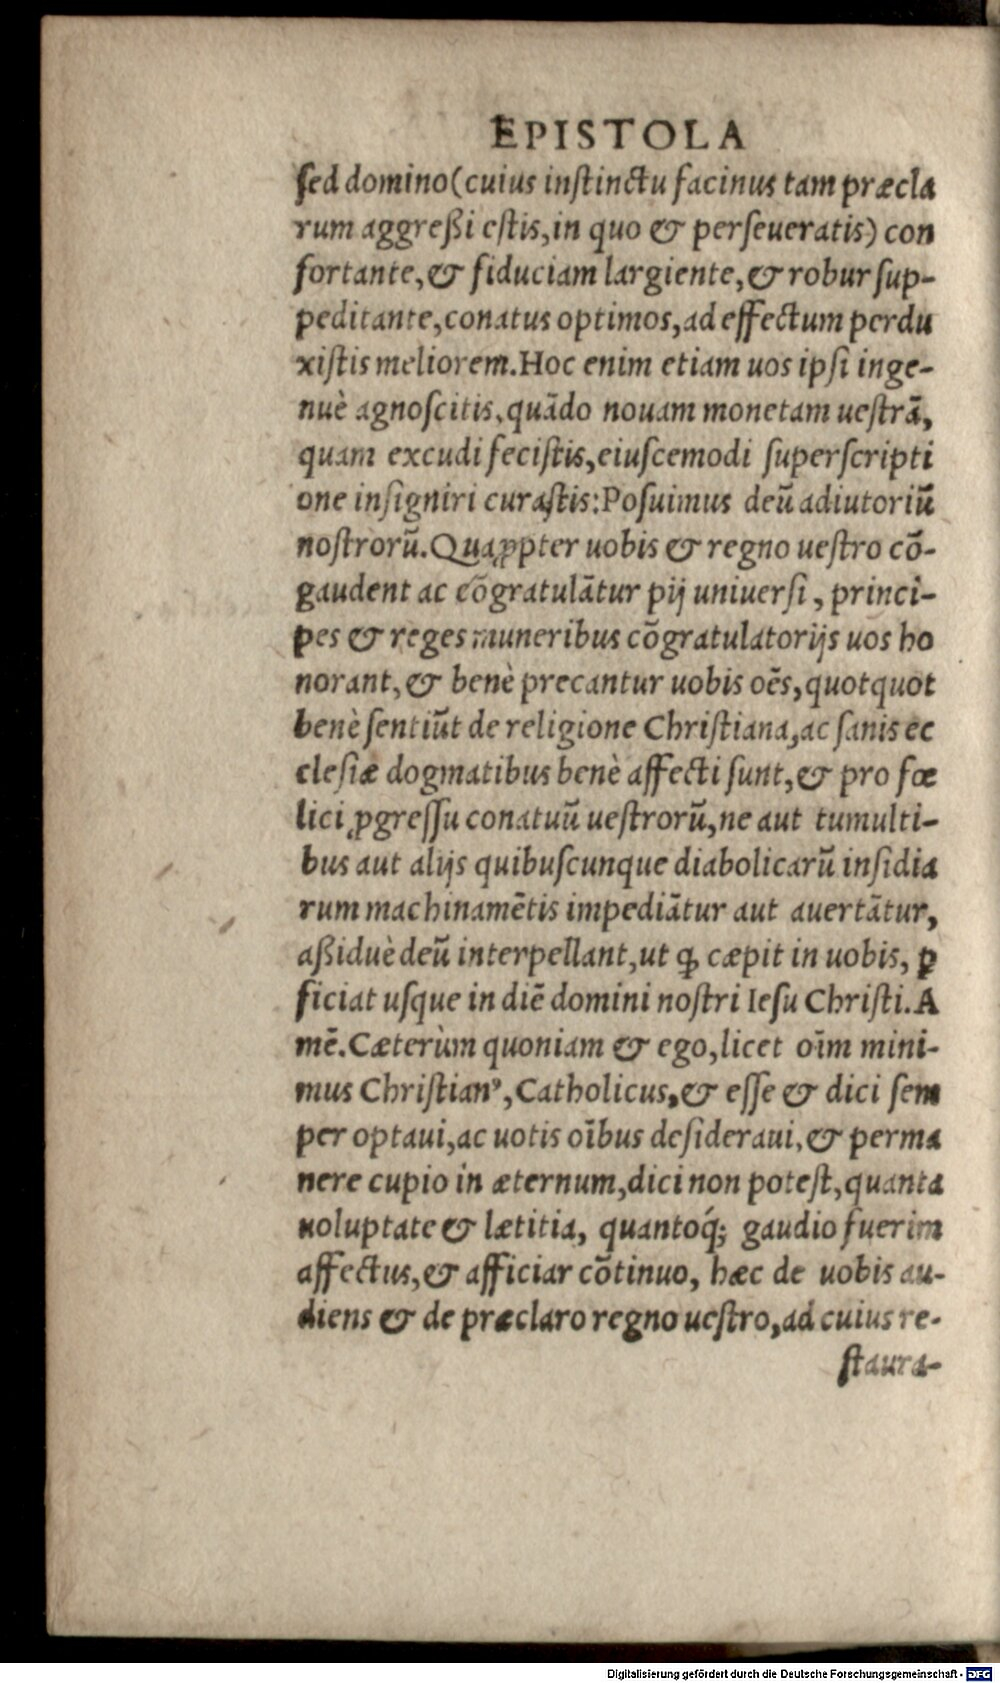 EPISTOLA
sed domino (cuius instinctu facinus tam præcla
rum aggreßi estis, in quo & perseueratis) con
fortante, & fiduciam largiente, & robur sup-
peditante, conatus optimos, ad effectum perdu
xistis meliorem. Hoc enim etiam uos ipsi inge-
nuè agnoscitis, quãdo nouam monetam uestrã,
quam excudi fecistis, eiuscemodi superscripti
one insigniri curastis: Posuimus deũ adiutoriũ
nostrorũ. Quaꝓpter uobis & regno uestro cõ-
gaudent ac cõgratulãtur pij uniuersi, princi-
pes & reges muneribus cõgratulatorijs uos ho
norant, & benè precantur uobis oẽs, quotquot
benè sentiũt de religione Christiana, ac sanis ec
clesiæ dogmatibus benè affecti sunt, & pro fœ
lici ꝓgressu conatuũ uestrorũ, ne aut tumulti-
bus aut alijs quibuscunque diabolicarũ insidia
rum machinamẽtis impediãtur aut auertãtur,
aßiduè deũ interpellant, ut ꝙ cæpit in uobis, ꝑ
ficiat usque in diẽ domini nostri Iesu Christi. A
mẽ. Cæterùm quoniam & ego, licet oĩm mini-
mus Christianꝰ, Catholicus, & esse & dici sem
per optaui, ac uotis oĩbus desideraui, & perma
nere cupio in æternum, dici non potest, quanta
uoluptate & lætitia, quantoq́; gaudio fuerim
affectus, & afficiar cõtinuo, hæc de uobis au-
diens & de præclaro regno uestro, ad cuius re-
staura-
Digitalisierung gefördert durch die Deutsche Forschungsgemeinschaft - DFG